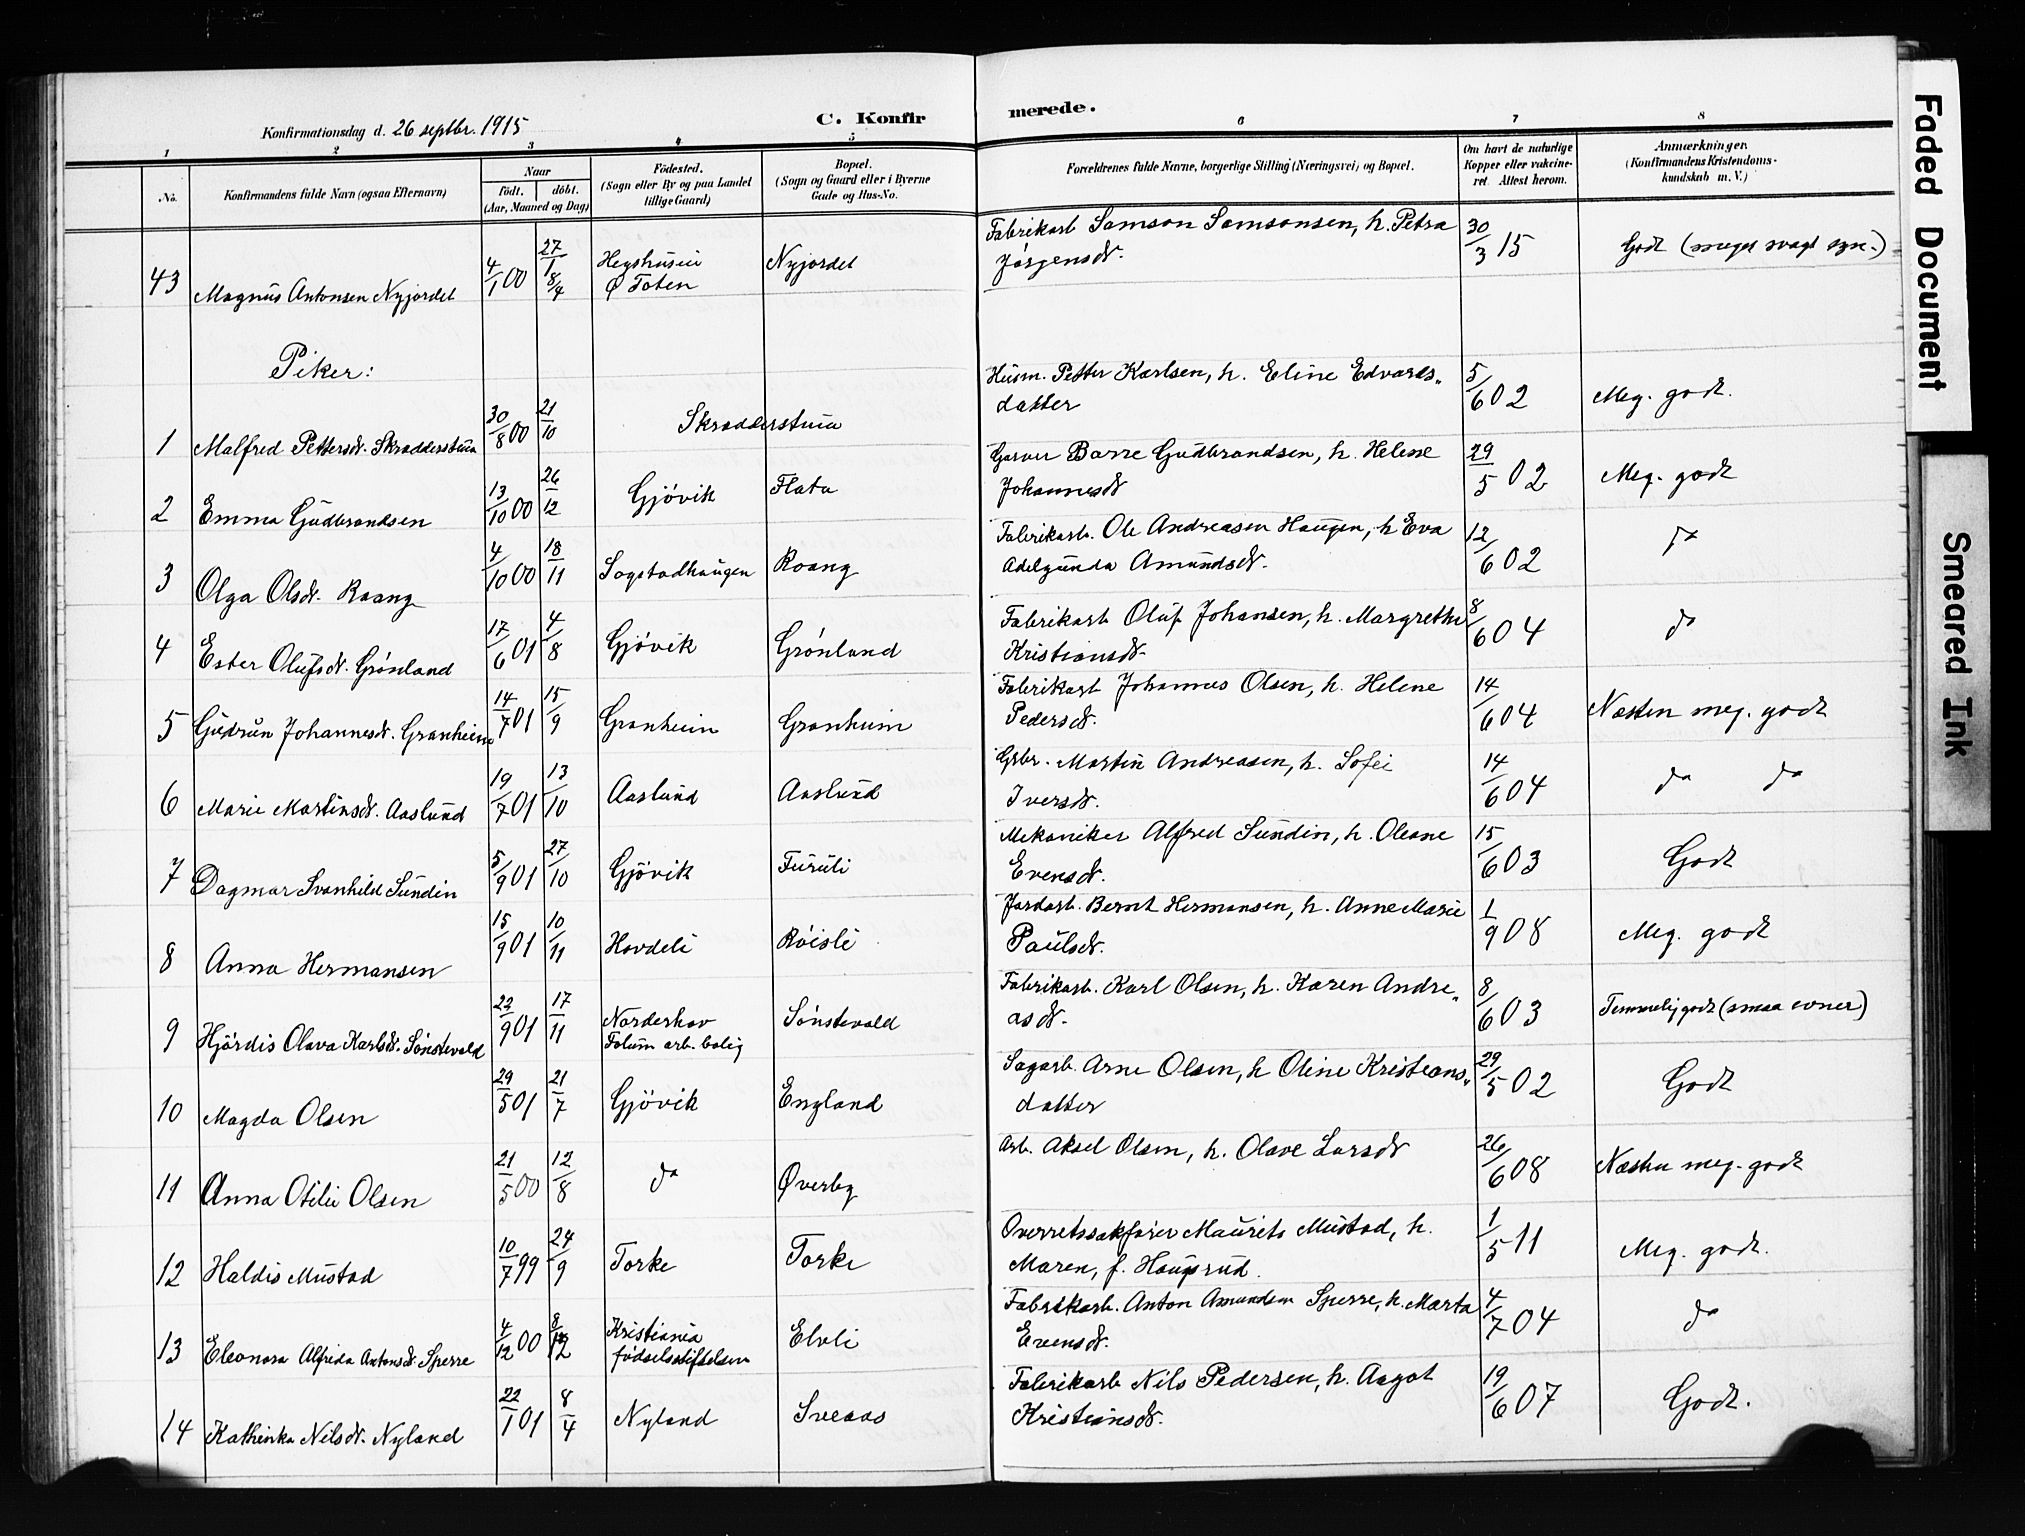 Konfirmationsdag d. 26 septbr. 1915
C. Konfirmerede.
1 2 3 4 5 6 7 8
No. Konfirmandens fulde Navn (ogsaa Efternavn) Naar født. døbt. (Aar, Maaned og Dag) Fødested. (Sogn eller By og paa Landet tillige Gaard) Bopæl. (Sogn og Gaard eller i Byerne Gade og Hus-No. Forældrenes fulde Navne, borgerlige Stilling (Næringsvei) og Bopæl. Om havt de naturlige Kopper eller vakcineret. Attest herom. Anmærkninger. (Konfirmandens Kristendomskundskab m. V.)
43 Magnus Antonsen Nyjordet 4/1 00 27/1 8/4 Hegshuseie Ø Toten Nyjordet Fabrikarb Samson Samsonsen, h. Petra Jørgensdr. 30/3 15 Godt (meget svagt syn.)
Piker:
1 Malfred Pettersdr. Skradderstuen 30/8 00 21/10 Skradderstuen Husm. Petter Karlsen, h. Eline Edvardsdatter 5/6 02 Meg. godt.
2 Emma Gudbrandsen 13/10 00 26/12 Gjövik Flata Garver Barre Gudbrandsen, h. Helene Johannesdr 29/5 02 Meg. godt
3 Olga Olsdr. Roang 4/10 00 18/11 Sogstadhaugen Roang Fabrikarb. Ole Andreasen Haugen, h Eva Adelgunda Amundsdr. 12/6 02 do
4 Ester Olufsdr. Grønland 17/6 01 4/8 Gjövik Grønland Fabrikarb Oluf Johansen, h. Margrethe Kristiansdr. 8/6 04 do
5 Gudrun Johannesdr. Granheim 14/7 01 15/9 Granheim Granheim Fabrikarb Johannes Olsen, h. Helene Pedersdr. 14/6 04 Næsten meg. godt
6 Marie Martinsdr. Aaslund 19/7 01 13/10 Aaslund Aaslund Grbr. Martin Andreasen, h. Sofie Iversdr. 14/6 04 do do
7 Dagmar Svanhild Sundin 5/9 01 27/10 Gjövik Furuli Mekaniker Alfred Sundin, h. Oleane Evensdr. 15/6 03 Godt
8 Anna Hermansen 15/9 01 10/11 Hovdeli Røisli Jordarb. Bernt Hermansen, h. Anne Marie Paulsdr. 1/9 08 Meg. godt
9 Hjördis Olava Karlsdr. Sønstevold 22/9 01 17/11 Norderhov Folum arb. bolig Sønstevold Fabrikarb. Karl Olsen, h. Karen Andreasdr. 8/6 03 Temmelig godt (smaa evner)
10 Magda Olsen 29/5 01 21/7 Gjövik England Sagarb. Arne Olsen, h Oline Kristiansdatter 29/5 02 Godt
11 Anna Otilie Olsen 21/5 00 12/8 do Øverby Arb. Aksel Olsen, h. Olave Larsdr 26/6 08 Næsten meg. godt
12 Haldis Mustad 10/7 99 24/9 Torke Torke Overretssakfører Maurits Mustad, h. Maren, f. Haugsrud. 1/5 11 Meg. godt.
13 Eleonora Alfrida Antonsdr. Sperre 4/12 00 8/12 Kristiania fødselsstiftelsen Elvli Fabrikarb. Anton Amundsen Sperre, h. Marta Evensdr. 4/7 04 do
14 Kathinka Nilsdr. Nyland 22/1 01 8/4 Nyland Sveaas Fabrikarb Nils Pedersen, h. Aagot Kristiansdr. 19/6 07 Godt.
Faded Document
Smeared Ink